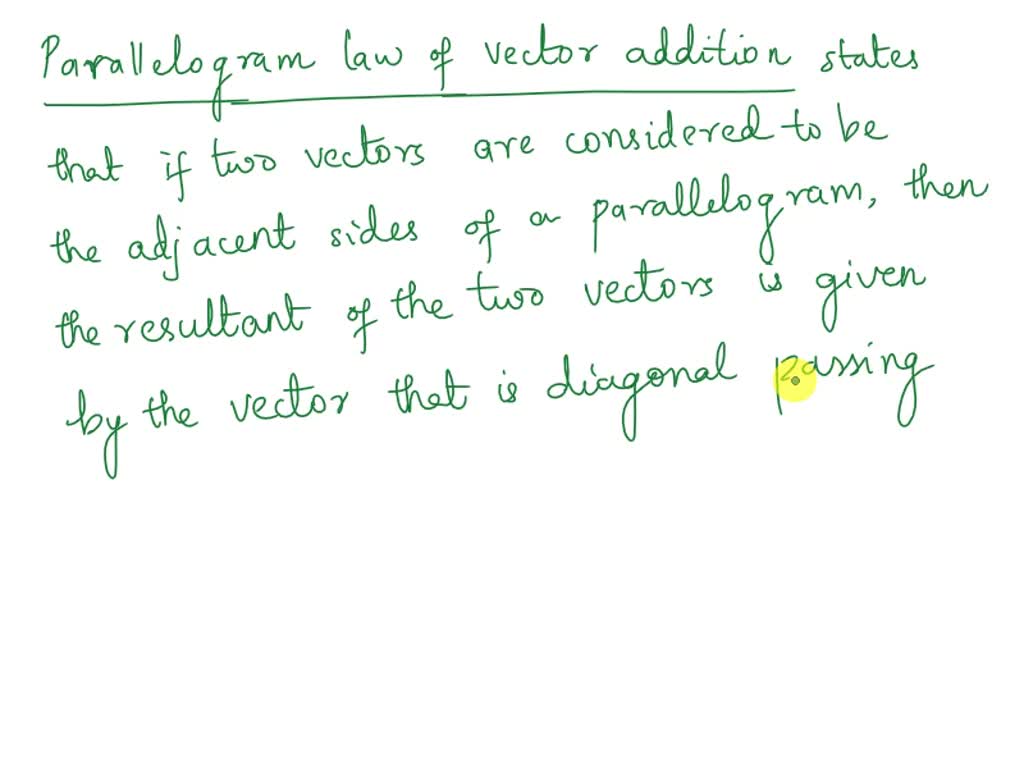 Parallelogram law of vector addition states
that if two vectors are considered to be
the adjacent sides of a parallelogram, then
the resultant of the two vectors is given
by the vector that is diagonal passing